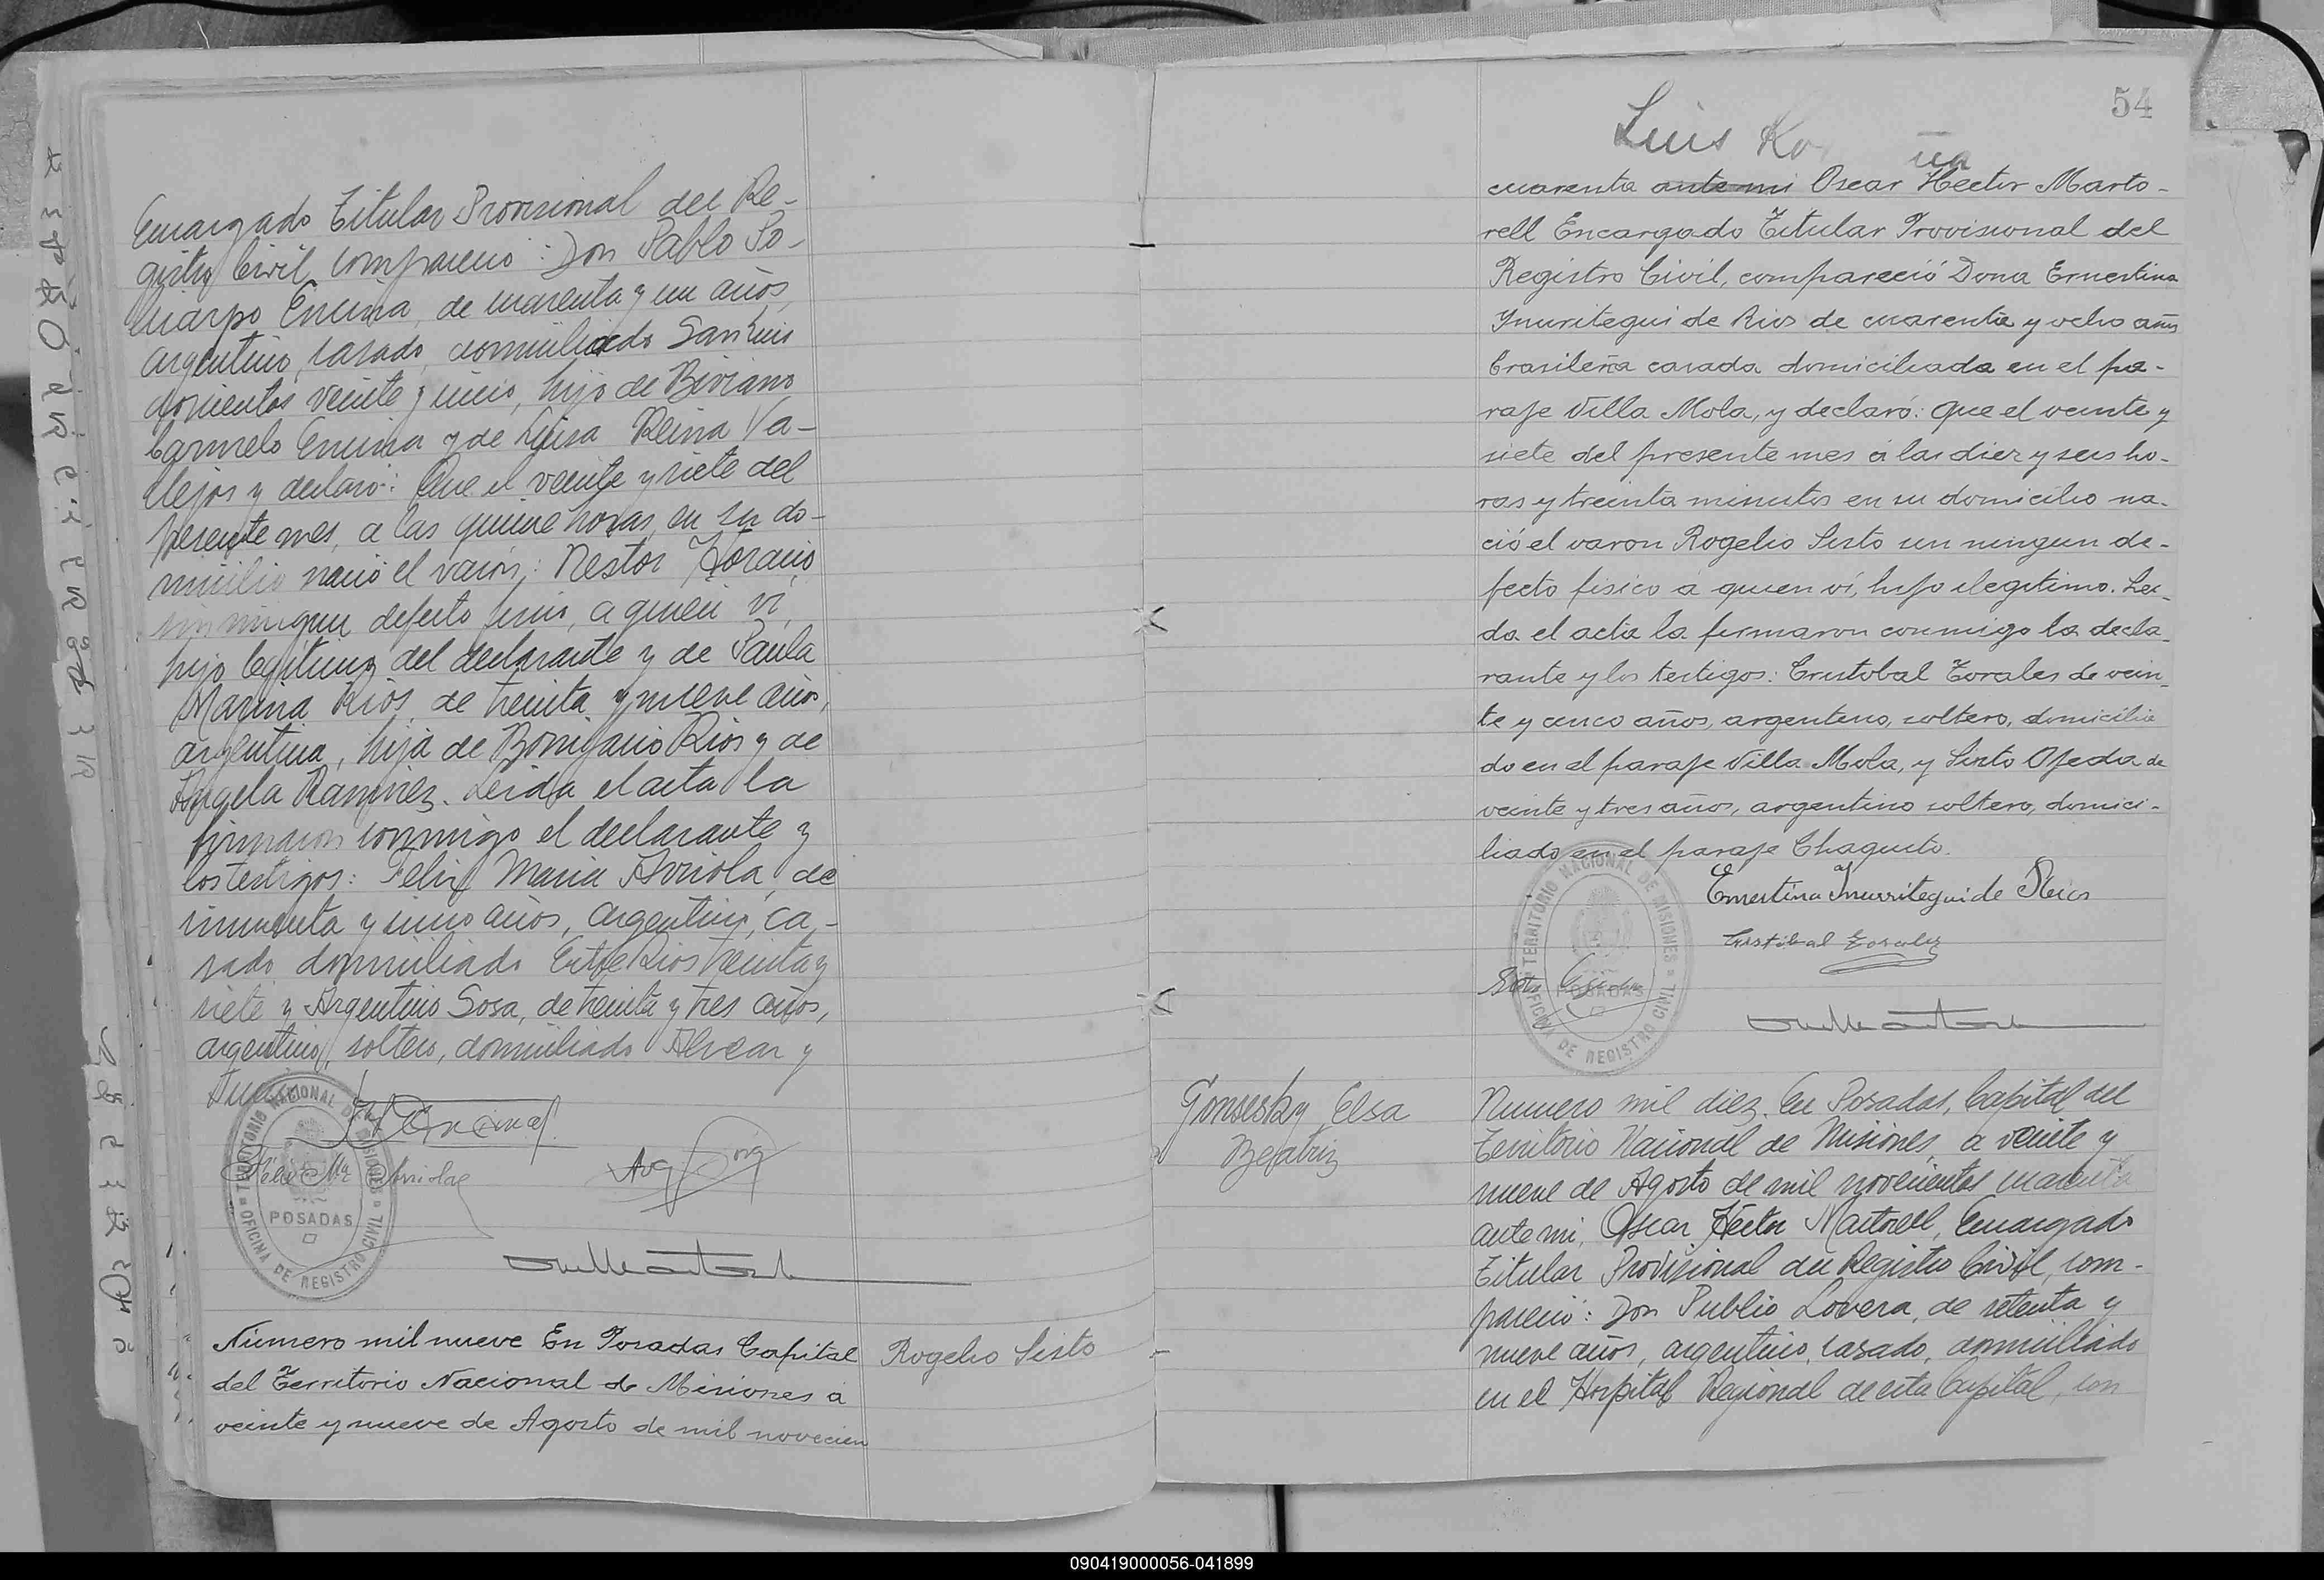 Encargado Titular Provisional del Re-
gistro Civil, compareció: Don Pablo Po-
licarpo Encina, de cuarenta y un años,
argentino, casado, domiciliado San Luis
doscientos veinte y cinco, hijo de Biviano
Carmelo Encina y de Luisa Reina Va-
llejos y declaró: Que el veinte y siete del
presente mes, a las quince horas, en su do-
micilio nació el varón: Nestor Horacio,
sin ningun defecto fisico, a quien vi,
hijo legítimo del declarante y de Paula
Marina Rios, de treinta y nueve años,
argentina, hija de Bonifacio Rios y de
Angela Ramirez. Leida el acta la
firmaron conmigo el declarante y
los testigos: Felix Maria Arriola, de
cincuenta y cinco años, argentino, ca-
sado domiciliado Entre Rios treinta y
siete y Argentino Sosa, de treinta y tres años,
argentino, soltero, domiciliado Alvear y
P Encina
Félix Ma Arriola
Arg Sosa
TERRITORIO NACIONAL DE MISIONES
POSADAS
OFICINA DE REGISTRO CIVIL
Número mil nueve En Posadas Capital
del Territorio Nacional de Misiones a
veinte y nueve de Agosto de mil novecien
Rogelio Sisto
54
Luis
cuarenta ante mi Oscar Hector Marto-
rell Encargado Titular Provisional del
Registro Civil, compareció Dona Ernestina
Ynuritegui de Rios de cuarenta y ocho años
brasileña casada domiciliada en el pa-
raje Villa Mola, y declaró: que el veinte y
siete del presente mes á las diez y seis ho-
ras y treinta minutos en su domicilio na-
ció el varon Rogelio Sisto sin ningun de-
fecto fisico a quien ví, hijo ilegitimo. Lei-
da el acta la firmaron conmigo la decla-
rante y los testigos: Cristobal Zorales de vein-
te y cinco años, argentino, soltero, domicilia
do en el paraje Villa Mola, y Sixto Ojeda de
veinte y tres años, argentino soltero, domici-
liado en el paraje Chaquito.
Ernestina Ynurritegui de Rios
Cristóbal Zorales
TERRITORIO NACIONAL DE MISIONES
POSADAS
OFICINA DE REGISTRO CIVIL
Gonsesky Elsa
Beatriz
Numero mil diez. En Posadas, Capital del
Territorio Nacional de Misiones, a veinte y
nueve de Agosto de mil novecientos cuarenta
ante mi, Oscar Hector Martorell, Encargado
Titular Provisional del Registro Civil, com-
pareció: Don Publio Lovera, de setenta y
nueve años, argentino, casado, domiciliado
en el Hospital Regional de esta Capital, con
090419000056-041899